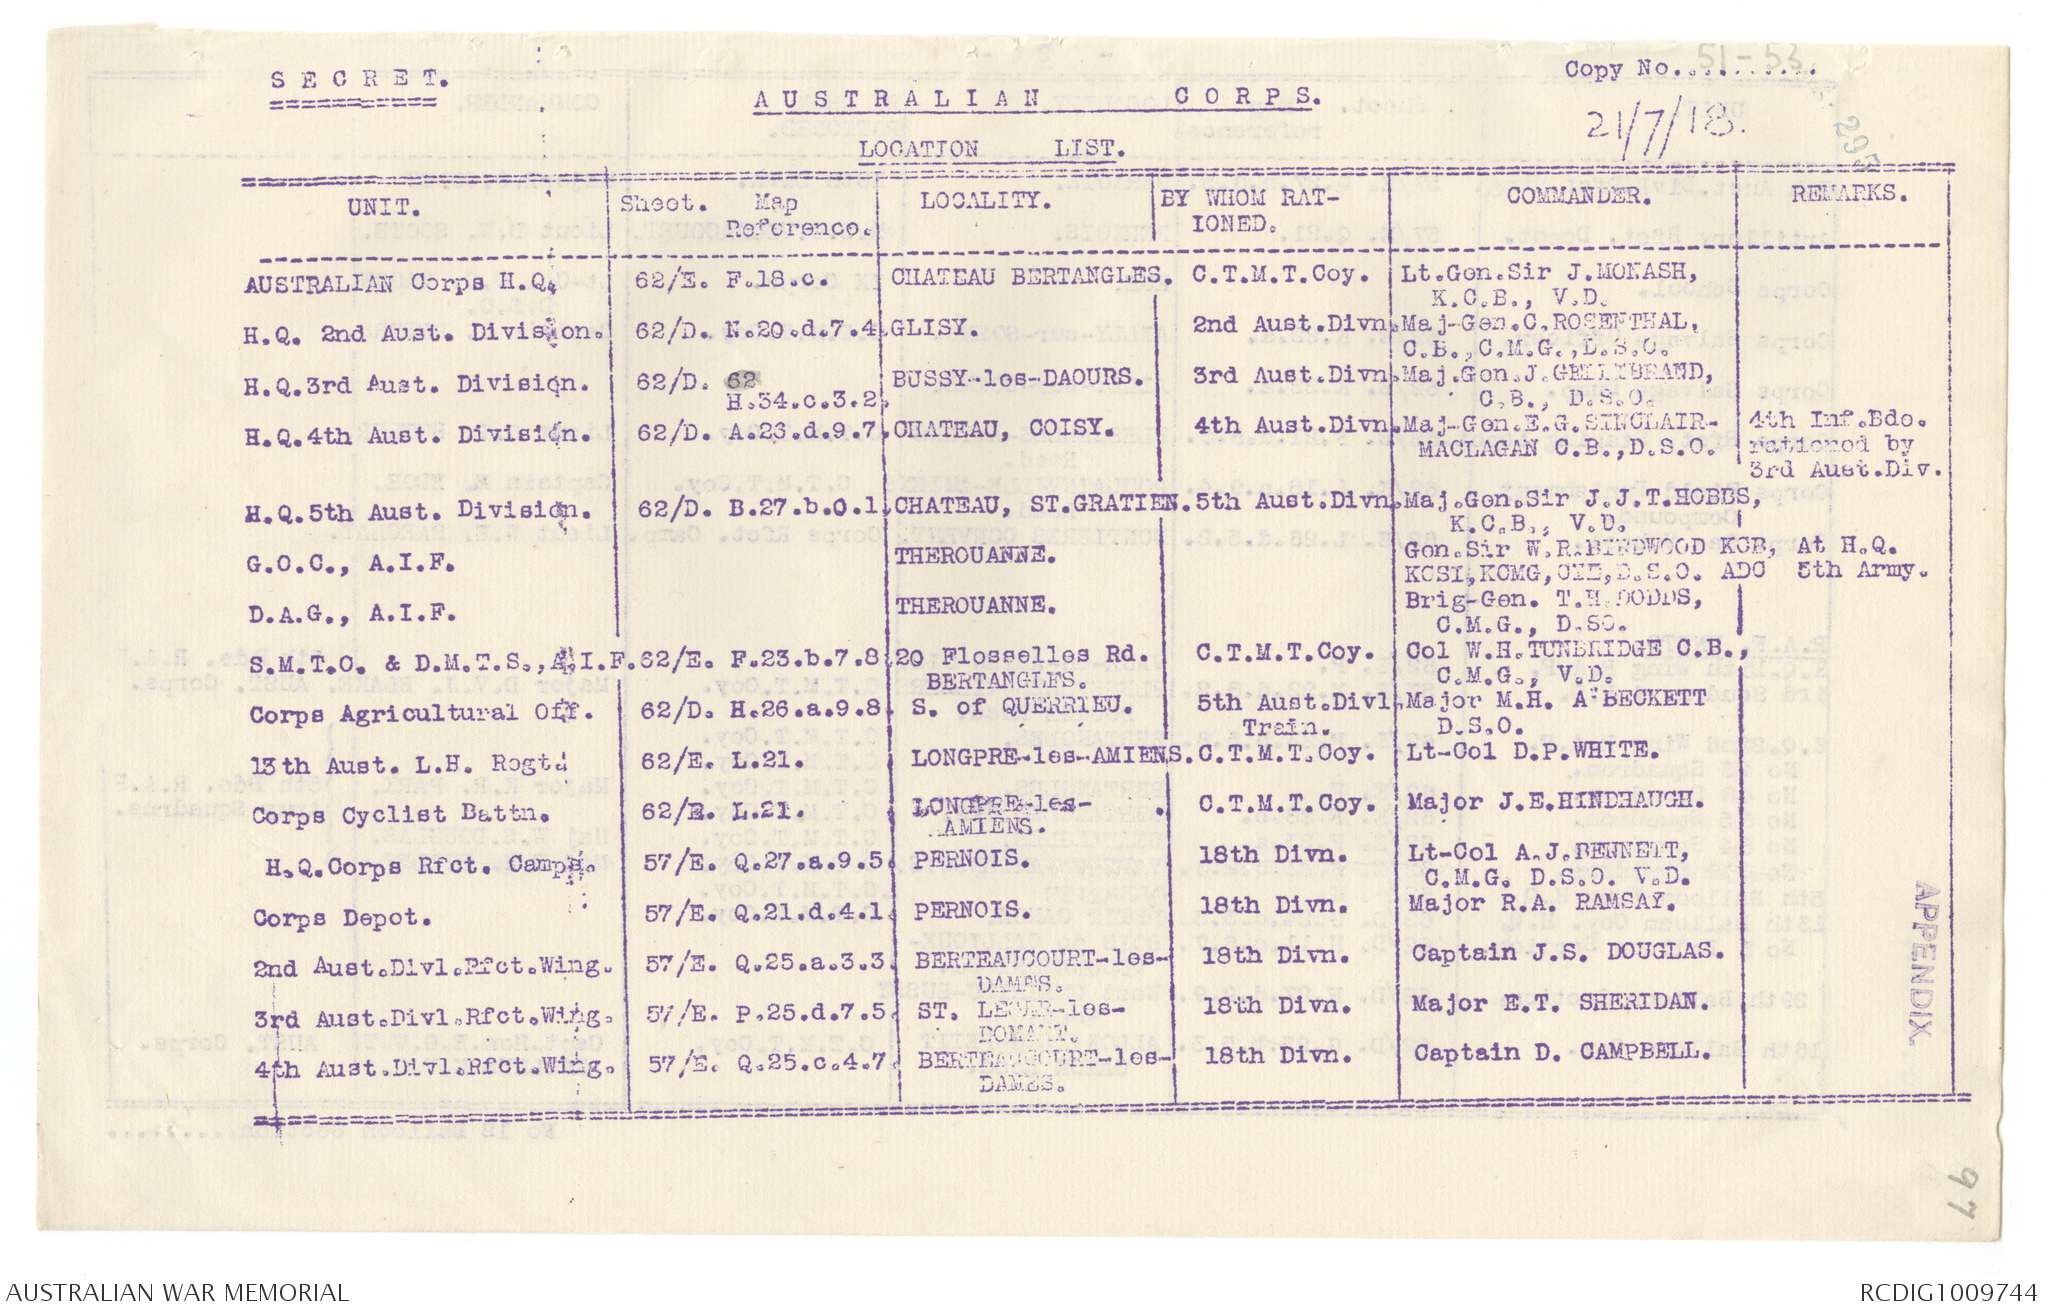 51-53
S E C R E T.
Copy No...........
A U S T R A L I A N C O R P S.
21/7/18.
295
LOCATION LIST.
UNIT. Sheet. Map Reference. LOCALITY. BY WHOM RAT-IONED. COMMANDER. REMARKS.
AUSTRALIAN Corps H.Q. 62/E. F.18.c. CHATEAU BERTANGLES. C.T.M.T.Coy. Lt.Gen.Sir J.MONASH,
K.C.B., V.D.
H.Q. 2nd Aust. Division. 62/D. N.20.d.7.4. GLISY. 2nd Aust.Divn. Maj-Gen.C.ROSENTHAL,
C.B.,C.M.G.,D.S.O.
H.Q.3rd Aust. Division. 62/D. 62 BUSSY-les-DAOURS. 3rd Aust.Divn. Maj.Gen.J.GELLIBRAND,
H.34.c.3.2. C.B., D.S.O.
H.Q.4th Aust. Division. 62/D. A.23.d.9.7. CHATEAU, COISY. 4th Aust.Divn. Maj-Gen.E.G.SINCLAIR- 4th Inf.Bde.
MACLAGAN C.B.,D.S.O. rationed by
3rd Aust.Div.
H.Q.5th Aust. Division. 62/D. B.27.b.0.1. CHATEAU, ST.GRATIEN. 5th Aust.Divn. Maj.Gen.Sir J.J.T.HOBBS,
K.C.B., V.D.
G.O.C., A.I.F. THEROUANNE. Gen.Sir W.R.BIRDWOOD KCB, At H.Q.
KCSI,KCMG,CIE,D.S.O. ADC 5th Army.
D.A.G., A.I.F. THEROUANNE. Brig-Gen. T.H.DODDS,
C.M.G., D.SO.
S.M.T.O. & D.M.T.S.,A.I.F. 62/E. F.23.b.7.8 20 Flosselles Rd. C.T.M.T.Coy. Col W.H.TUNBRIDGE C.B.,
BERTANGLES. C.M.G., V.D.
Corps Agricultural Off. 62/D. H.26.a.9.8. S. of QUERRIEU. 5th Aust.Divl. Major M.H. A'BECKETT
Train. D.S.O.
13th Aust. L.H. Regt. 62/E. L.21. LONGPRE-les-AMIENS. C.T.M.T.Coy. Lt-Col D.P.WHITE.
Corps Cyclist Battn. 62/E. L.21. LONGPRE-les- C.T.M.T.Coy. Major J.E.HINDHAUGH.
AMIENS.
H.Q.Corps Rfct. Camps. 57/E. Q.27.a.9.5. PERNOIS. 18th Divn. Lt-Col A.J.BENNETT,
C.M.G. D.S.O. V.D.
Corps Depot. 57/E. Q.21.d.4.1. PERNOIS. 18th Divn. Major R.A. RAMSAY.
2nd Aust.Divl.Rfct.Wing. 57/E. Q.25.a.3.3. BERTEAUCOURT-les- 18th Divn. Captain J.S. DOUGLAS.
DAMES.
3rd Aust.Divl.Rfct.Wing. 57/E. P.25.d.7.5. ST. LEGER-les- 18th Divn. Major E.T. SHERIDAN.
DOMART.
4th Aust.Divl.Rfct.Wing. 57/E. Q.25.c.4.7. BERTEAUCOURT-les- 18th Divn. Captain D. CAMPBELL.
DAMES.
APPENDIX.
97
AUSTRALIAN WAR MEMORIAL
RCDIG1009744